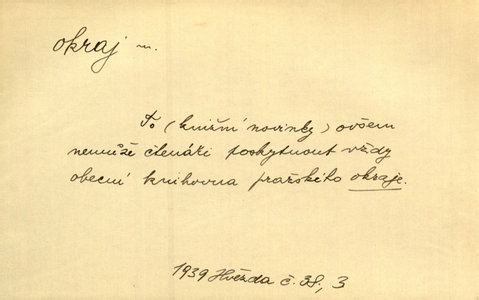 okraj m.
To (knižní novinky) ovšem
nemůže čtenáři poskytnout vždy
obecní knihovna pražského okraje.
1939 Hvězda č. 38, 3